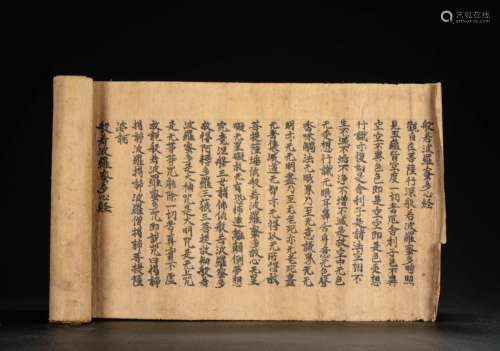 般若波羅蜜多心経
觀自在菩薩行深般若波羅蜜多時照
見五蘊皆空度一切苦厄舍利子色不異
空空不異色色即是空空即是色受想
行識亦復如是舍利子是諸法空相不
生不滅不垢不淨不增不減是故空中无色
无受想行識无眼耳鼻舌身意无色聲
香味觸法无眼界乃至无意識界无无
明亦无无明盡乃至无老死亦无老死盡
无苦集滅道无智亦无得以无所得故
菩提薩埵依般若波羅蜜多故心无罣
礙无罣礙故无有恐怖遠離顛倒夢想
究竟涅槃三世諸佛依般若波羅蜜多
故得阿耨多羅三藐三菩提故知般若
波羅蜜多是大神咒是大明咒是无上咒
是无等等咒能除一切苦真實不虛
故說般若波羅蜜多咒即說咒曰揭諦
揭諦波羅揭諦波羅僧揭諦菩提薩
婆訶
般若波羅蜜多心経
艺狐在线